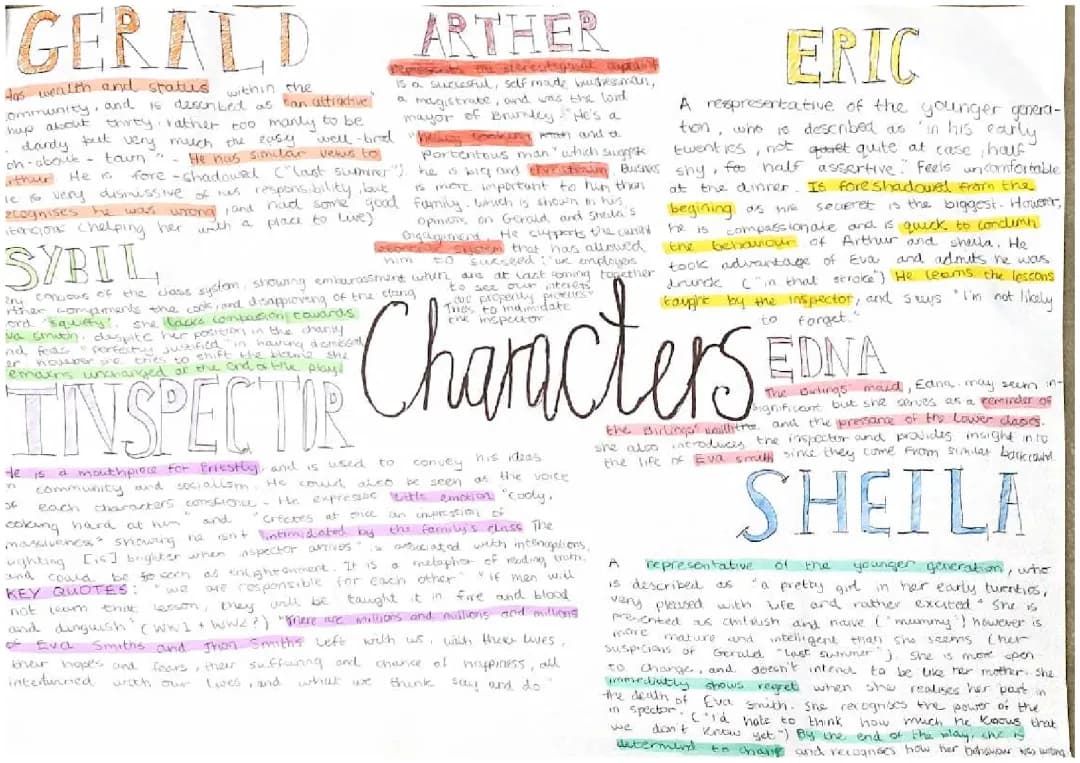 GERALD
Has wealth and status within the
community, and is described as "an attractive
chap about thirty, rather too manly to be
a dandy but very much the easy well-bred
man-about-town" - He has similar veiws to
Arthur He is fore-shadowed ("last summer")
He is very dismissive of his responsibility, but
recognises he was wrong, and had some good
intensions (helping her with a place to live)
SYBIL
conious of the class system, showing embarassment when
Arther compliments the cook, and disapproving of the slang
word "squiffy". she lacks compassion towards
Eva smith, despite her position in the charity
and feels "perfectly justified" in having
however tries to shift the blame, she
remains unchanged at the end of the play
INSPECTOR
He is a mouthpiece for Priestly, and is used to convey his ideas
on community and socialism. He could also be seen as the voice
of each characters - He expresses little emotion "cooly,
looking hard at him" and "creates at once an impression of
massiveness" showing he isn't intimidated by the family's class The
lighting [is] brighter when inspector arrives" is associated with
and could be seen as enlightenment. It is a metaphor of
KEY QUOTES: "we are responsible for each other" "if men will
not learn that lesson, they will be taught it in fire and blood
and anguish" (WW1 + WW2?) "There are millions and millions and millions
of Eva Smiths and Jhon Smiths left with us, with their lives,
their hopes and fears, their suffering and chance of happiness, all
intertwined with our lives, and what we think say and do"
ARTHER
represents the stereotypical
is a succesful, self made businessman,
a magistrate, and was the lord
mayor of Brumley. "He's a
heavy looking and a
portentous man" which suggests
he is big and threatening Business
is more important to him than
family. which is shown in his
opinions on Gerald, and sheila's
Engagement. He supports the
economic system that has allowed
him to succeed: "we employers
are at last coming together
to see our interests
are properly protected"
Tries to intimidate
the inspector
Characters
ERIC
A respresentative of the younger genera-
tion, who is described as "in his early
twenties, not quite at ease, half
shy, half assertive." Feels uncomfortable
at the dinner. Is foreshadowed from the
begining as his secret is the biggest. However,
he is compassionate and is quick to condemn
the behaviour of Arthur and sheila. He
took advantage of Eva and admits he was
drunk ("in that stroke") He learns the lessons
taught by the inspector, and says "I'm not likely
to forget."
EDNA
The Birlings' maid, Edna may seem in-
significant but she serves as a reminder of
the Birlings' and the of the lower classes.
she also introduces the inspector and provides insight into
the life of Eva smith since they come from similar
SHEILA
A representative of the younger generation, who
is described as "a pretty girl in her early twenties,
very pleased with life and rather excited" She is
presented as childish and naive ("mummy") however is
more mature and intelligent than she seems (her
suspicions of Gerald "last summer"). She is more open
to change, and doesn't intend to be like her mother. she
immediatly shows regret when she realises her part in
the death of Eva Smith. She recognises the power of the
inspector. ("I'd hate to think how much he knows that
we don't know yet") By the end of the play, she is
determind to change and recognises how her behaviour was wrong